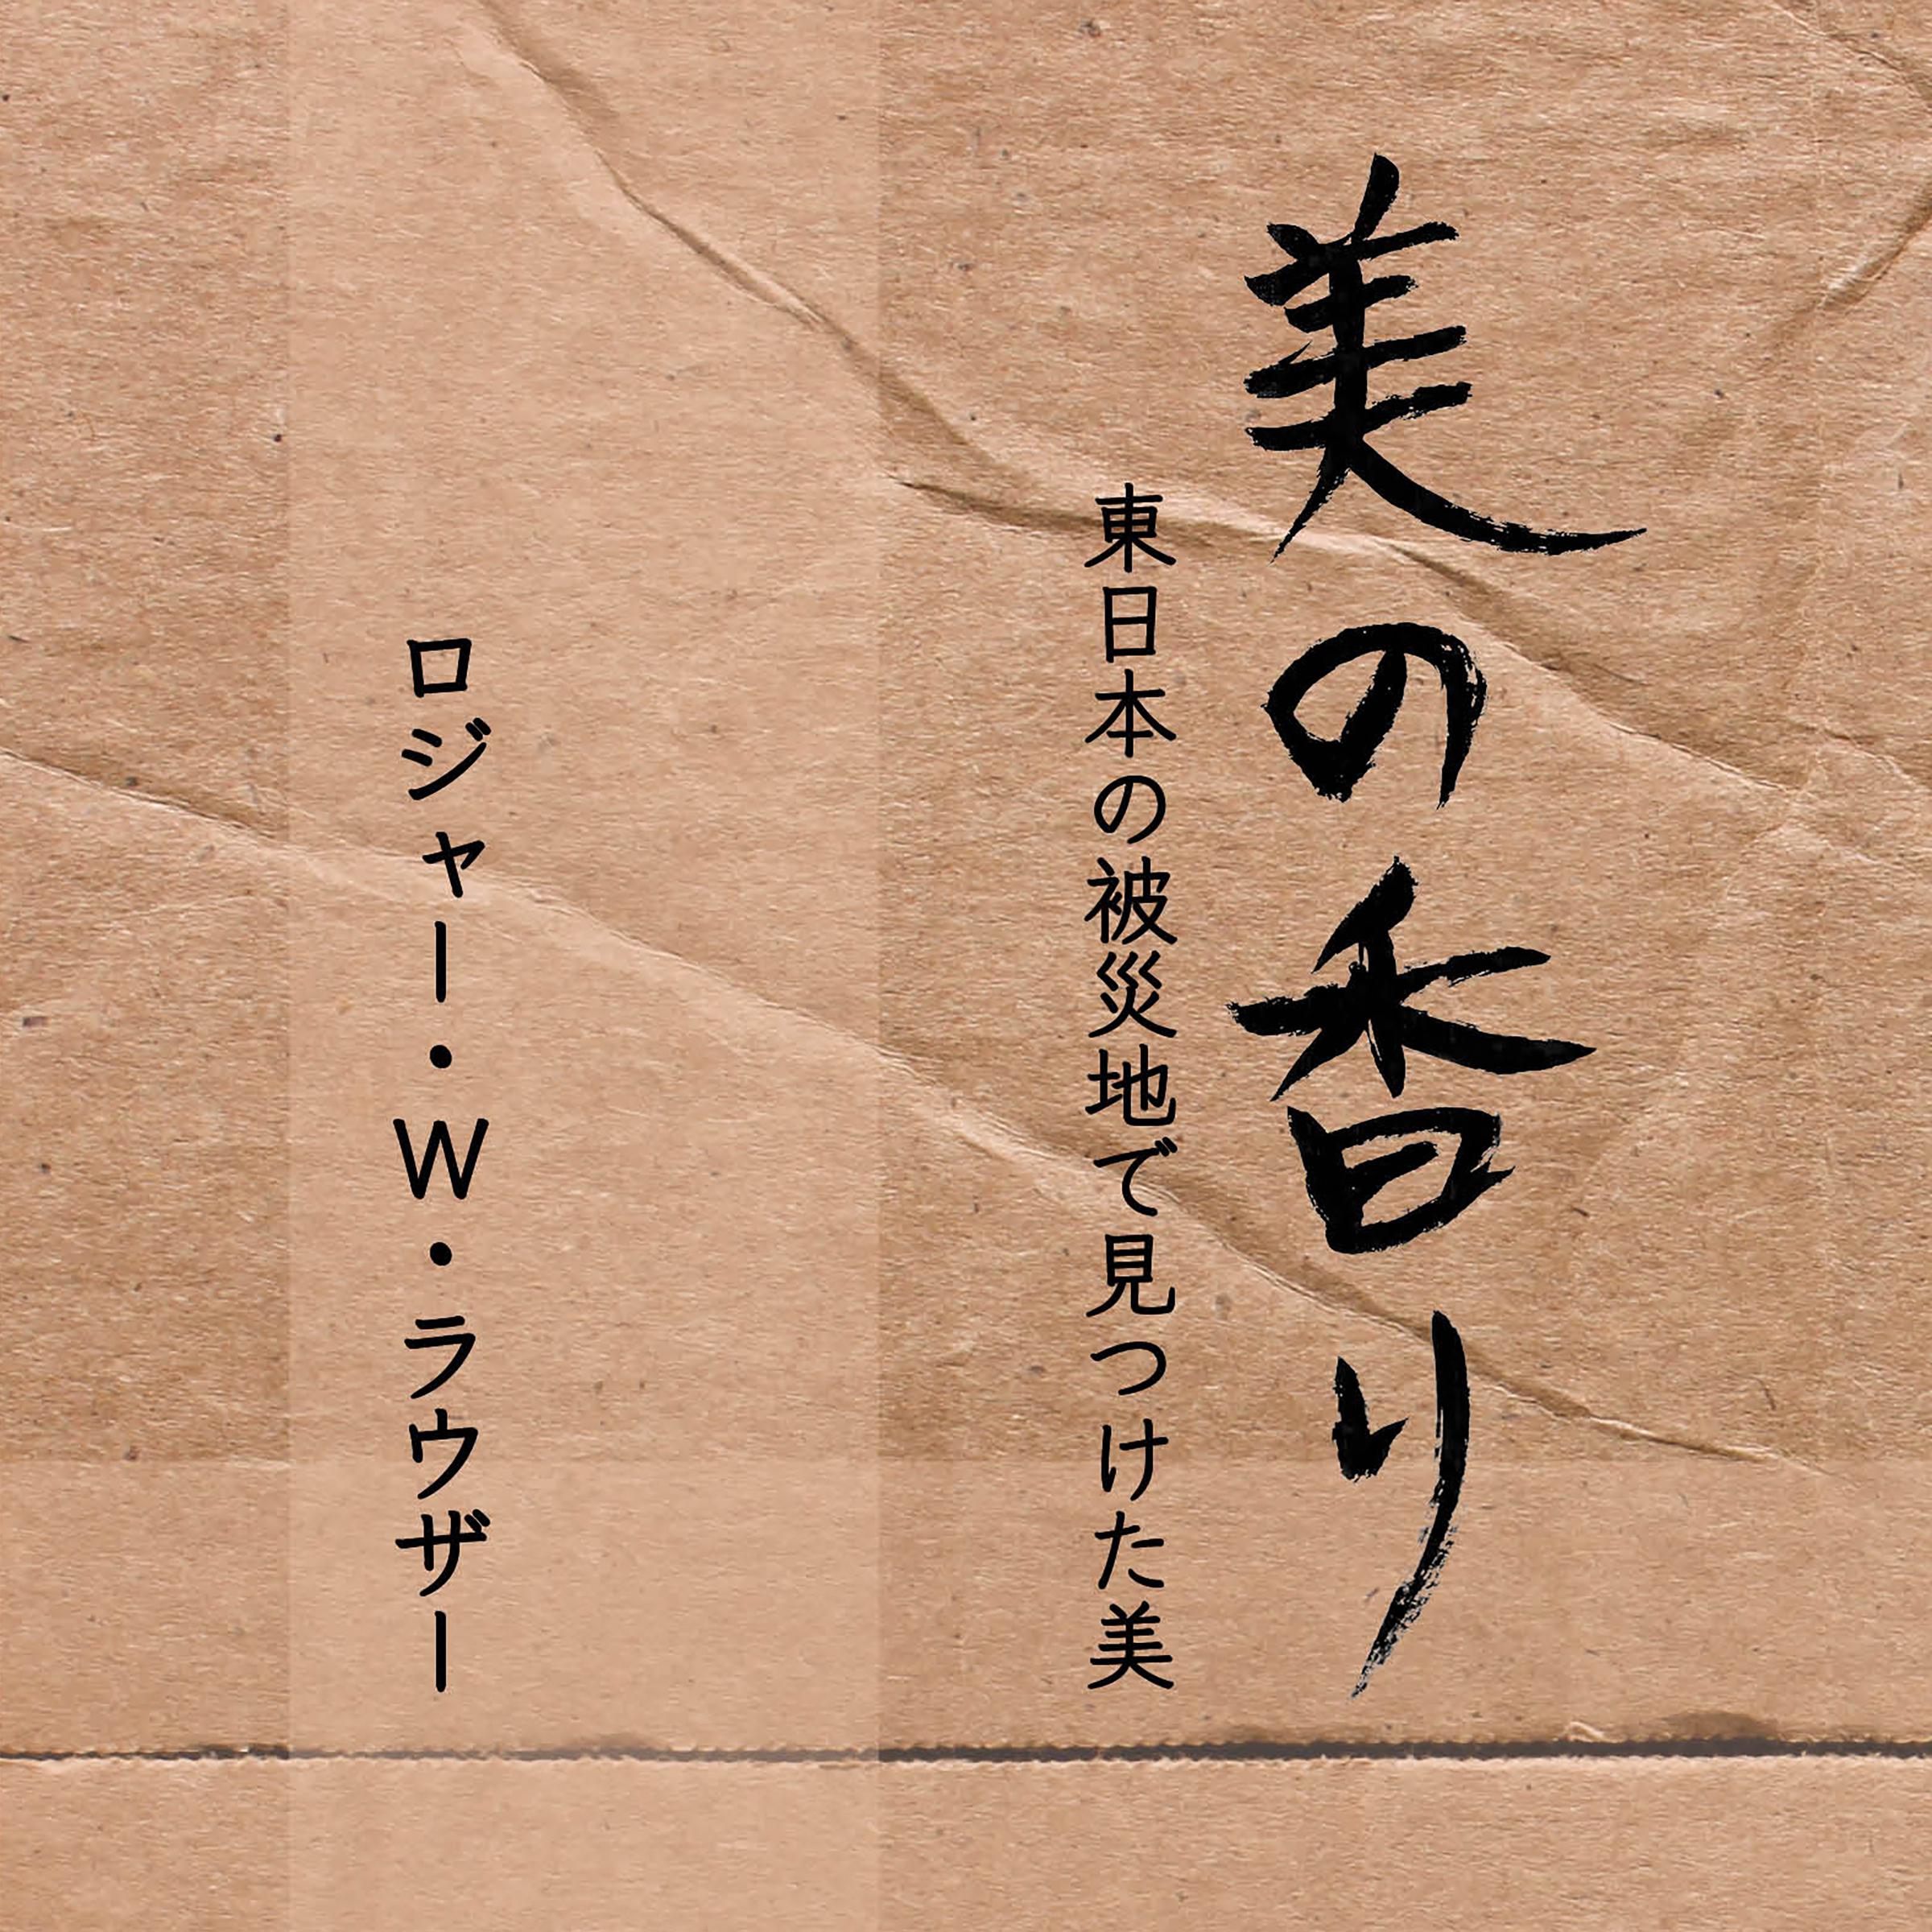 美の香り
東日本の被災地で見つけた美
ロジャー・W・ラウザー